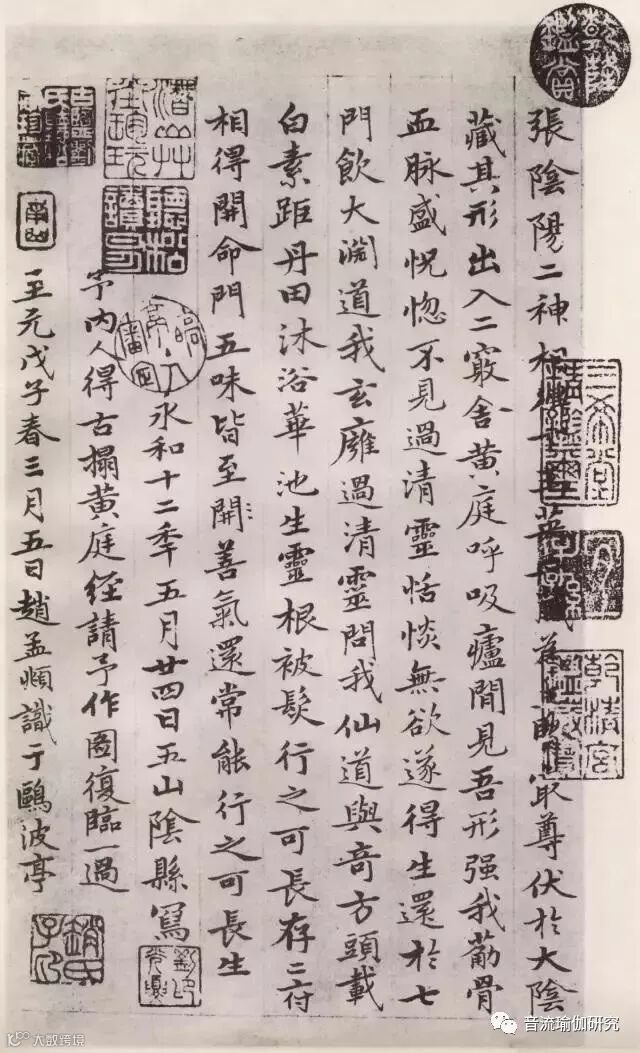 乾隆鑑賞
張陰陽二神相 尊伏於大陰
三希堂精鑑璽
宜子孫
藏其形出入二竅舍黃庭呼吸廬間見吾形强我筋骨
血脉盛恍惚不見過清靈恬惔無欲遂得生還於七
門飲大淵道我玄廱過清靈問我仙道與奇方頭載
白素距丹田沐浴華池生靈根被髮行之可長存二府
相得開命門五味皆至開善氣還常能行之可長生
永和十二年五月廿四日五山陰縣寫
予內人得古搨黃庭經請予作圖復臨一過
至元戊子春三月五日趙孟頫識于鷗波亭
趙氏子昂
音流瑜伽研究
大数跨境